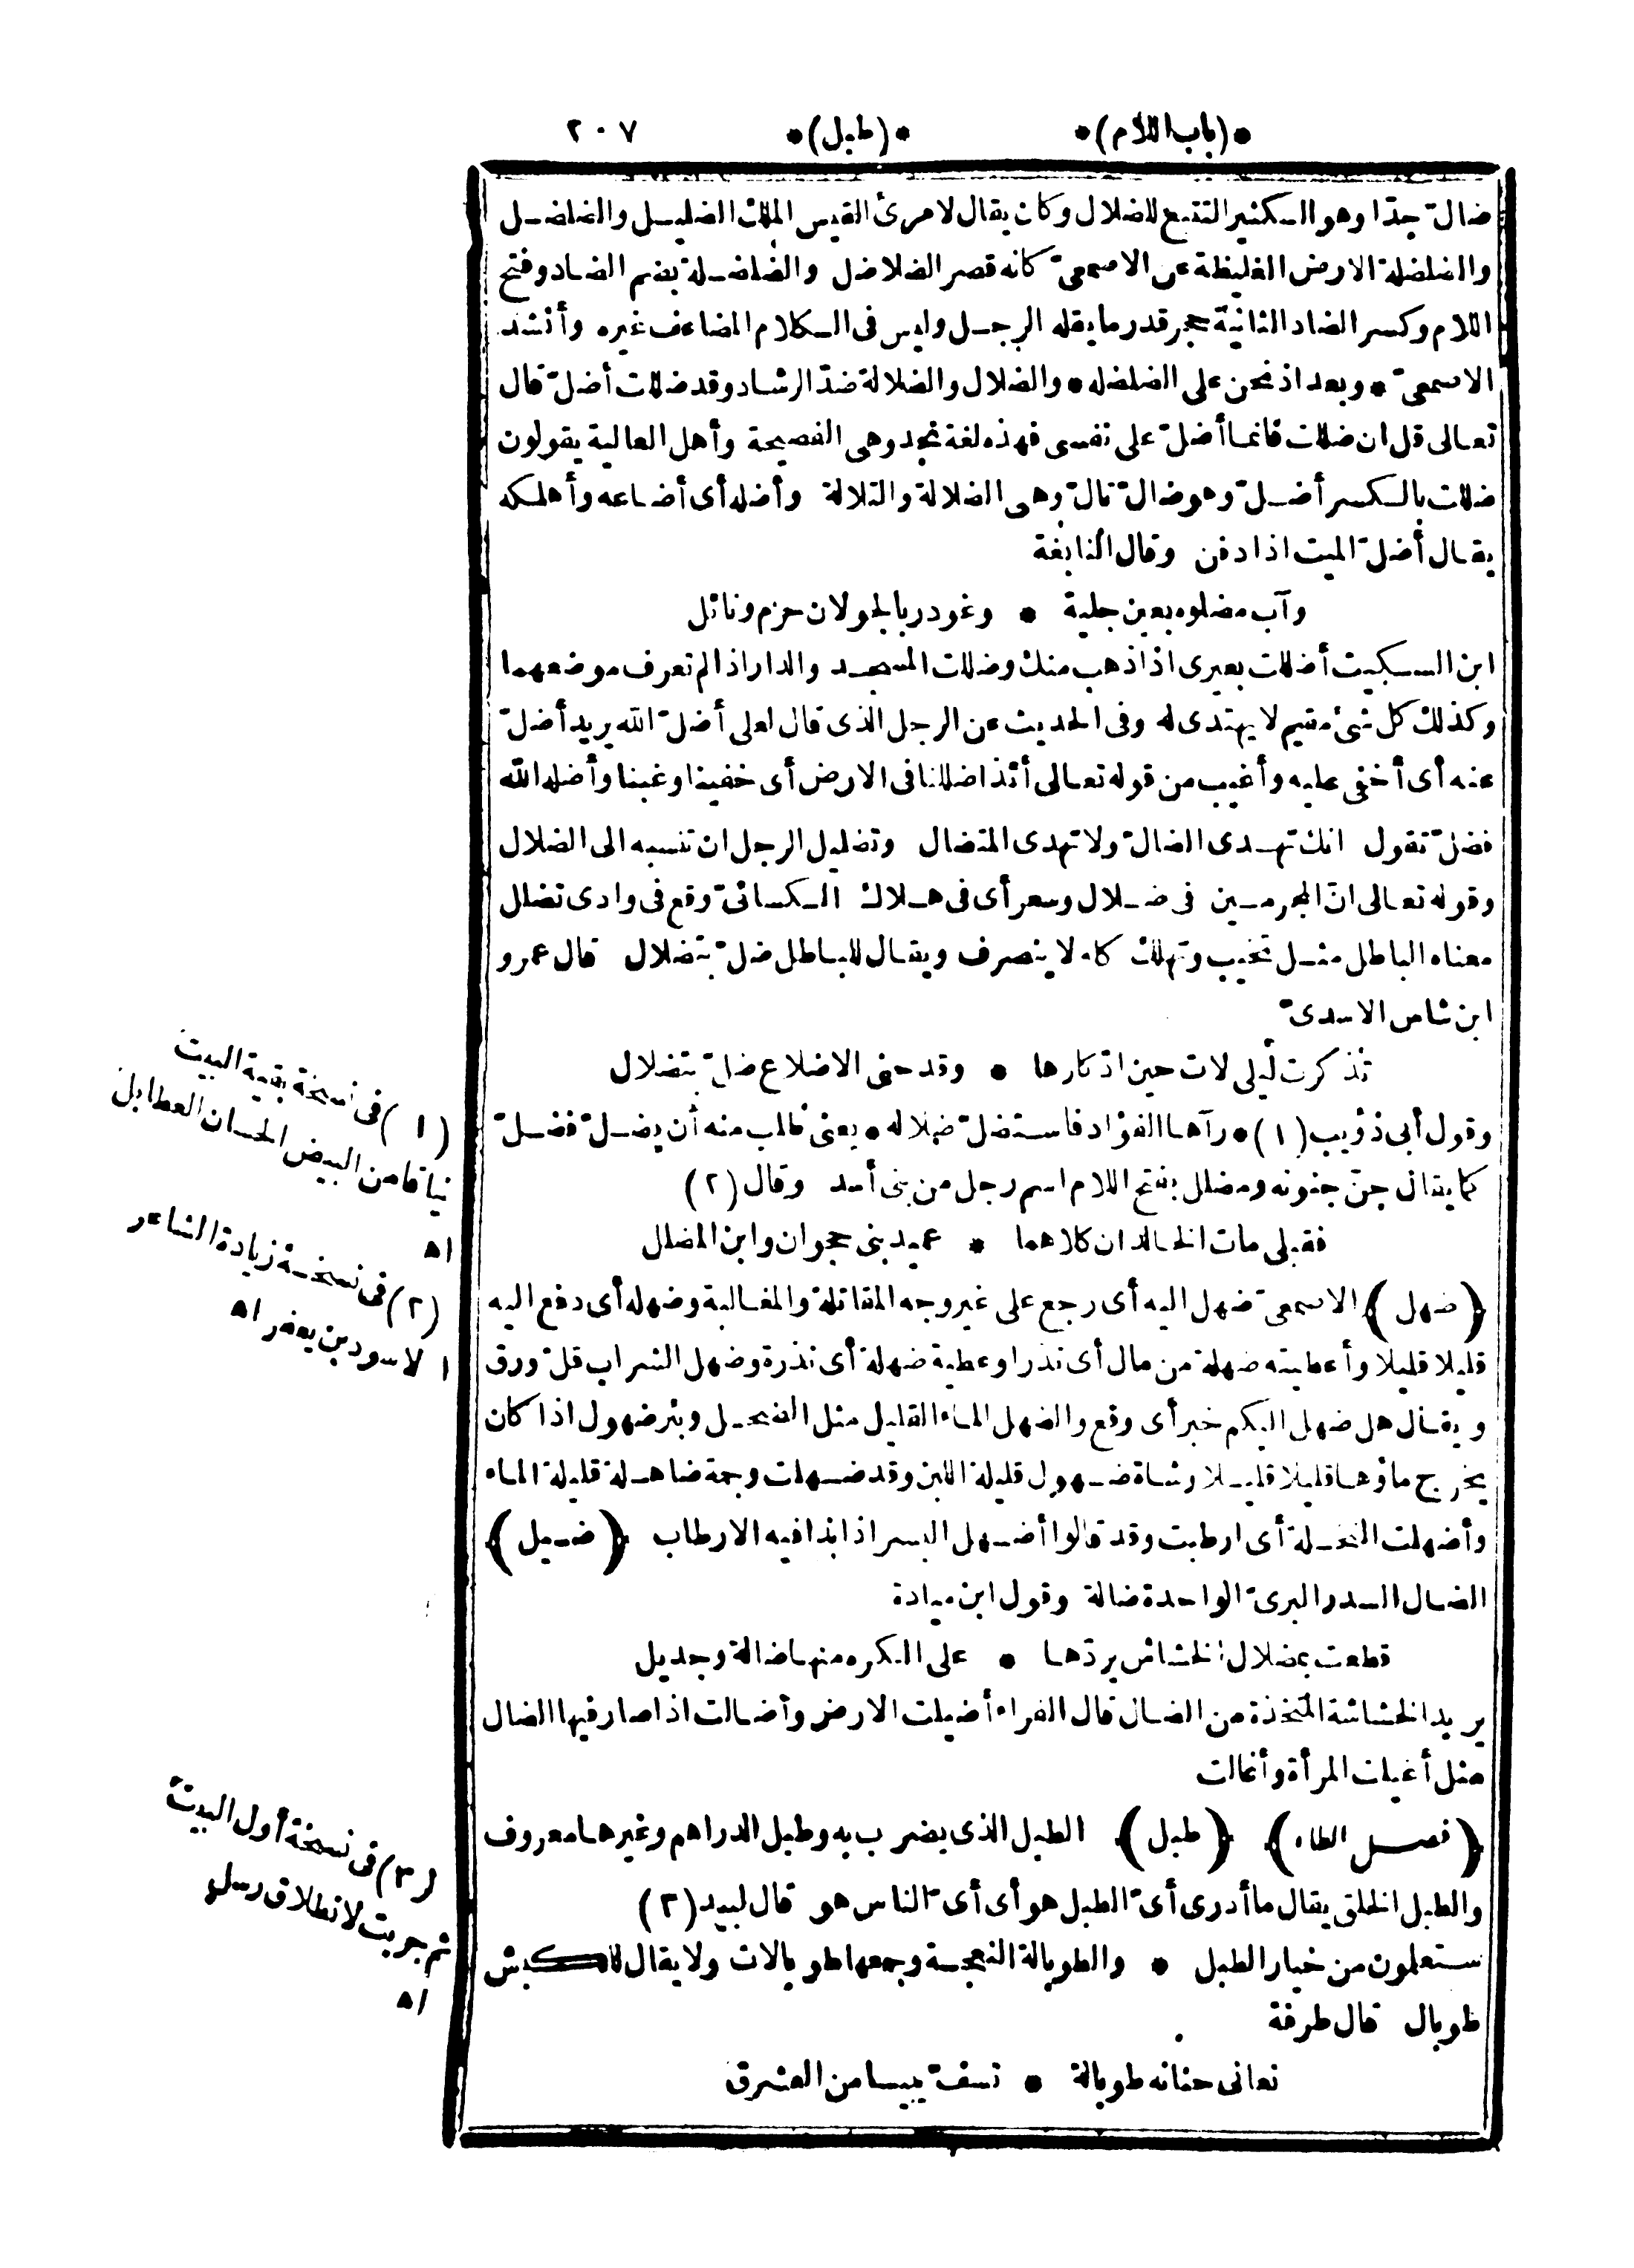 *(باب اللام)* *(طبل)* ٢٠٧
ضالّ جدّا وهو الكثير التتبع للضلال وكان يقال لامرئ القيس الملك الضليل والضلضل
والضلضلة الارض الغليظة عن الاصمعىّ كانه قصر الضلاضل والضلضلة بضم الضاد وفتح
اللام وكسر الضاد الثانية حجر قدر ما يقله الرجل وليس فى الكلام المضاعف غيره وأنشد
الاصمعىّ * وبعد اذ نحن على الضلضله * والضلال والضلالة ضدّ الرشاد وقد ضللت أضلّ قال
تعالى قل ان ضللت فانما أضلّ على نفسى فهذه لغة نجد وهى الفصيحة وأهل العالية يقولون
ضللت بالكسر أضلّ وهو ضالّ تالّ وهى الضلالة والتلالة وأضله أى أضاعه وأهلكه
يقال أضلّ الميت اذا دفن وقال النابغة
وآب مضلوه بعين جلية * وغودر بالجولان حزم ونائل
ابن السكيت أضللت بعيرى اذا ذهب منك وضللت المسجد والدار اذا لم تعرف موضعهما
وكذلك كل شئ مقيم لا يهتدى له وفى الحديث عن الرجل الذى قال لعلى أضلّ الله يريد أضلّ
عنه أى أخفى عليه وأغيب من قوله تعالى أئذا ضللنا فى الارض أى خفينا وغبنا وأضله الله
فضلّ تقول انك تهدى الضالّ ولا تهدى المتضال وتضليل الرجل ان تنسبه الى الضلال
وقوله تعالى انّ المجرمين فى ضلال وسعر أى فى هلاك الكسائىّ وقع فى وادى تضلل
معناه الباطل مثل تخيب وتهلك كله لا ينصرف ويقال للباطل ضلّ بتضلال قال عمرو
ابن شاس الاسدىّ
تذكرت ليلى لات حين ادّكارها * وقد حنى الاضلاع ضلّ بتضلال
وقول أبى ذؤيب (١) * رآها الفؤاد فاستضلّ ضلاله * يعنى طلب منه أن يضلّ فضلّ
كما يقال جنّ جنونه ومضلل بفتح اللام اسم رجل من بنى أسد وقال (٢)
فقبلى مات الخالدان كلاهما * عميد بنى حجوان وابن المضلل
﴿ضهل﴾ الاصمعىّ ضهل اليه أى رجع على غير وجه المقاتلة والمغالبة وضهله أى دفع اليه
قليلا قليلا وأعطيته ضهلة من مال أى نذرا وعطية ضهلة أى نذرة وضهل الشراب قلّ ورق
ويقال هل ضهل اليكم خبر أى وقع والضهل الماء القليل مثل الضحل وبئر ضهول اذا كان
يخرج ماؤها قليلا قليلا وشاة ضهول قليلة اللبن وقد ضهلت وجمة ضاهلة قليلة الماء
وأضهلت النخلة أى ارطبت وقد قالوا أضهل البسر اذا بدا فيه الارطاب ﴿ضيل﴾
الضال السدر البرىّ الواحدة ضالة وقول ابن ميادة
قطعت بمضلال الخشاش يردّها * على الكره منها ضالة وجديل
يريد الخشاشة المتخذة من الضال قال الفراء أضيلت الارض وأضالت اذا صار فيها الضال
مثل أغيلت المرأة وأغالت
﴿فصل الطاء﴾ ﴿طبل﴾ الطبل الذى يضرب به وطبل الدراهم وغيرها معروف
والطبل الخلق يقال ما أدرى أىّ الطبل هو أى أىّ الناس هو قال لبيد (٣)
ستعلمون من خيار الطبل * والطوبالة النعجة وجمعها طوبالات ولا يقال للكبش
طوبال قال طرفة
نعانى حنانه طوبالة * تسفّ يبيسا من العشرق
(١) فى نسخة بقية البيت
نيافا من البيض الحسان العطابل
اه
(٢) فى نسخة زيادة الشاعر
الاسود بن يعفر اه
(٣) فى نسخة أول البيت
ثم جريت لانطلاق رسلى
اه